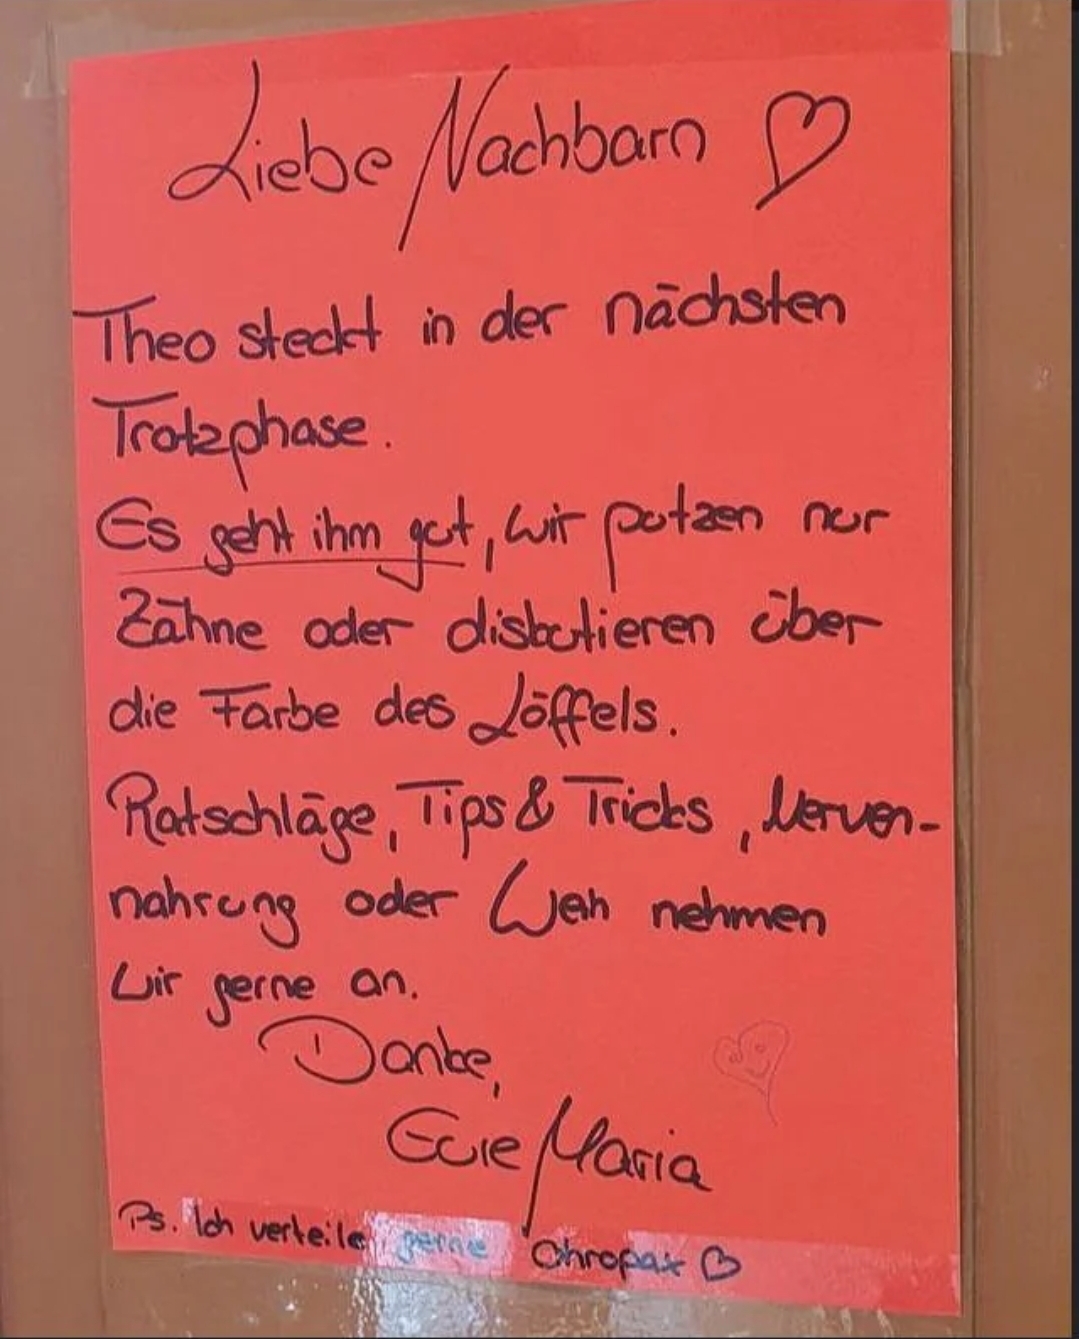 Liebe Nachbarn ♡
Theo steckt in der nächsten
Trotzphase.
Es geht ihm gut, wir putzen nur
Zähne oder diskutieren über
die Farbe des Löffels.
Ratschläge, Tips & Tricks, Nerven-
nahrung oder Wein nehmen
wir gerne an.
Danke,
Eure Maria
Ps. Ich verteile gerne Ohropax ♡